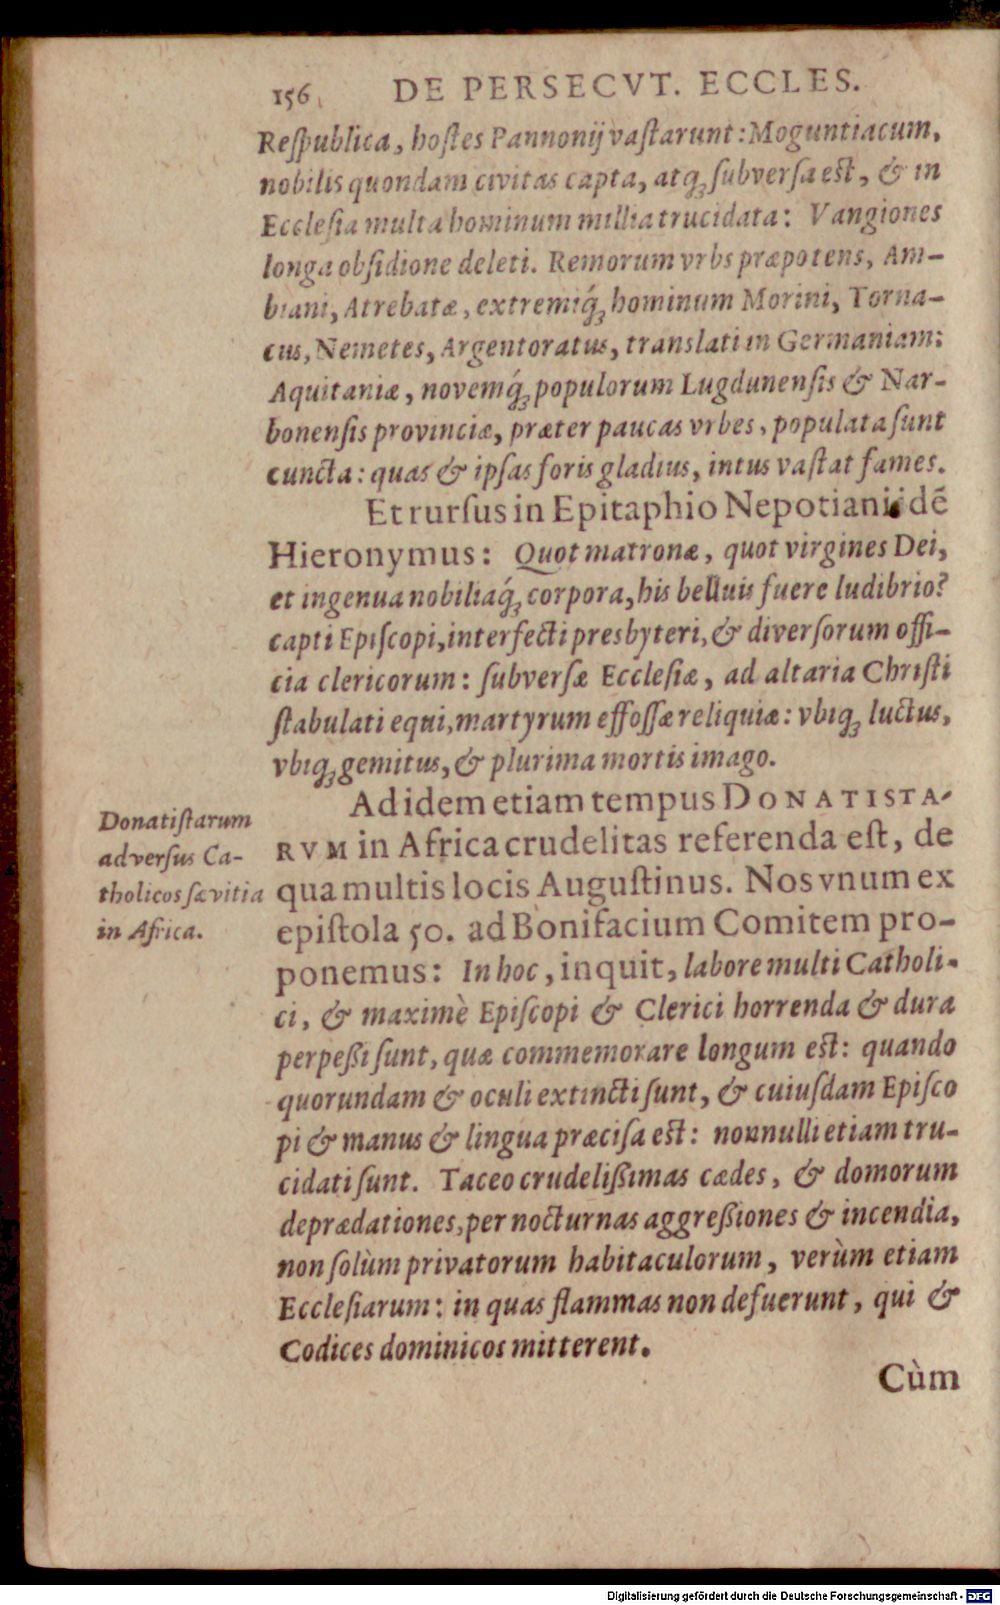 156 DE PERSECVT. ECCLES.
Reſpublica, hoſtes Pannonij vaſtarunt: Moguntiacum,
nobilis quondam civitas capta, atq́ꝫ ſubverſa est, & in
Eccleſia multa hominum millia trucidata: Vangiones
longa obſidione deleti. Remorum vrbs præpotens, Am-
biani, Atrebatæ, extremiq́ꝫ hominum Morini, Torna-
cus, Nemetes, Argentoratus, translati in Germaniam:
Aquitaniæ, novemq́ꝫ populorum Lugdunenſis & Nar-
bonenſis provinciæ, præter paucas vrbes, populata ſunt
cuncta: quas & ipſas foris gladius, intus vaſtat fames.
Et rurſus in Epitaphio Nepotiani idẽ
Hieronymus: Quot matronæ, quot virgines Dei,
et ingenua nobiliaq́ꝫ corpora, his belluis fuere ludibrio?
capti Epiſcopi, interfecti presbyteri, & diverſorum offi-
cia clericorum: ſubverſæ Eccleſiæ, ad altaria Chriſti
ſtabulati equi, martyrum effoſſæ reliquiæ: vbiqꝫ luctus,
vbiqꝫ gemitus, & plurima mortis imago.
Ad idem etiam tempus DONATISTA-
RVM in Africa crudelitas referenda eſt, de
qua multis locis Auguſtinus. Nos vnum ex
epiſtola 50. ad Bonifacium Comitem pro-
ponemus: In hoc, inquit, labore multi Catholi-
ci, & maximè Epiſcopi & Clerici horrenda & dura
perpeßi ſunt, quæ commemorare longum est: quando
quorundam & oculi extincti ſunt, & cuiuſdam Epiſco
pi & manus & lingua præciſa est: nonnulli etiam tru-
cidati ſunt. Taceo crudelißimas cædes, & domorum
deprædationes, per nocturnas aggreßiones & incendia,
non ſolùm privatorum habitaculorum, verùm etiam
Eccleſiarum: in quas flammas non defuerunt, qui &
Codices dominicos mitterent.
Cùm
Donatiſtarum
adverſus Ca-
tholicos ſævitia
in Africa.
Digitalisierung gefördert durch die Deutsche Forschungsgemeinschaft - DFG